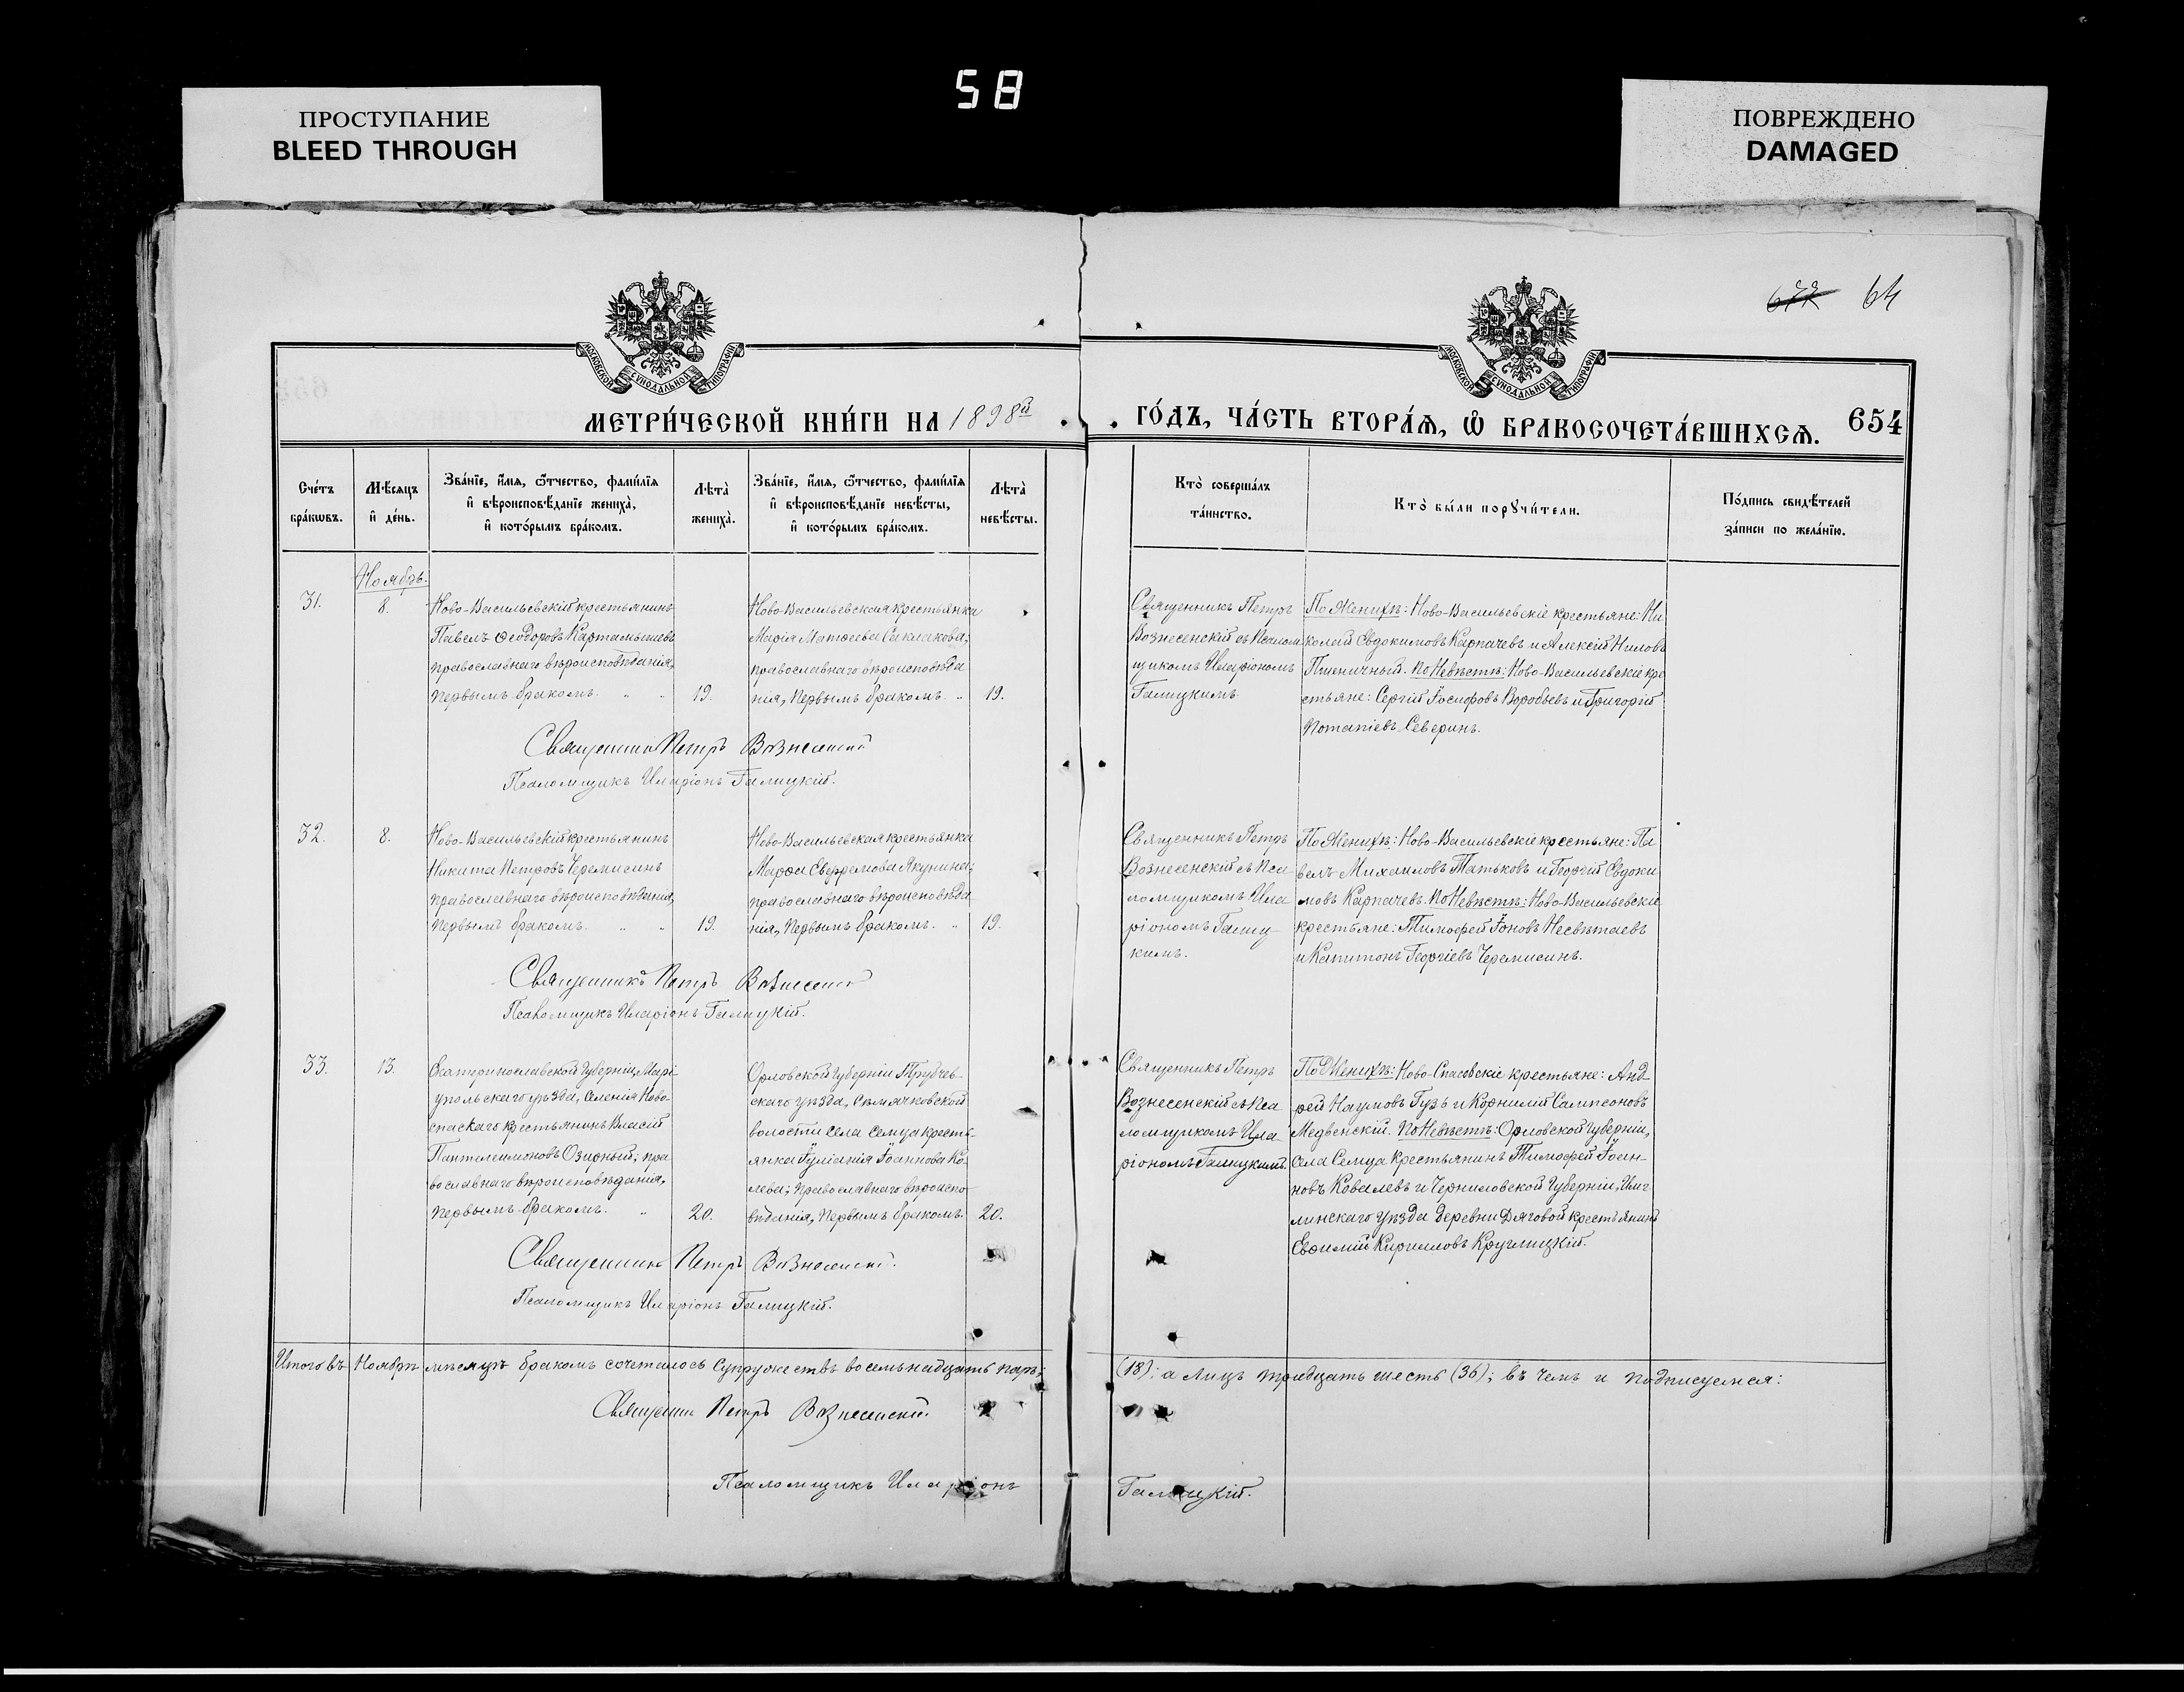 58
ПРОСТУПАНИЕ
BLEED THROUGH
ПОВРЕЖДЕНО
DAMAGED
64
МОСКОВСКОЙ СѴНОДАЛЬНОЙ ТИПОГРАФІИ
МОСКОВСКОЙ СѴНОДАЛЬНОЙ ТИПОГРАФІИ
МЕТРИ́ЧЕСКОЙ КНИ́ГИ НА 1898й
ГО́ДЪ, ЧА́СТЬ ВТОРА́Ѧ, Ѡ҆ БРАКОСОЧЕТА́ВШИХСѦ. 654
Сче́тъ
бра́кѡвъ.
Мѣ́сѧцъ
и҆ де́нь.
Зва́нїе, и҆́мѧ, ѻ҆́тчество, фами́лїѧ
и҆ вѣроисповѣ́данїе жениха̀,
и҆ кото́рымъ бра́комъ.
Лѣта̀
жениха̀.
Зва́нїе, и҆́мѧ, ѻ҆́тчество, фами́лїѧ
и҆ вѣроисповѣ́данїе невѣ́сты,
и҆ кото́рымъ бра́комъ.
Лѣта̀
невѣ́сты.
Кто̀ соверша́лъ
та́инство.
Кто̀ бы́ли порꙋчи́тели.
По́дпись свидѣ́телей
за́писи по жела́нїю.
Ноябрь.
31.
8.
Ново-Васильевскій крестьянинъ
Павелъ Ѳеодоровъ Картамышевъ
православнаго вѣроисповѣданія,
первымъ бракомъ.
19.
Ново-Васильевская крестьянка
Марія Матѳеева Саклакова;
православнаго вѣроисповѣда
нія, первымъ бракомъ.
19.
Священникъ Петръ
Вознесенскій съ псалом
щикомъ Иларіономъ
Галицкимъ
По Женихѣ: Ново-Васильевскіе крестьяне: Ни
колай Евдокимовъ Карпачевъ и Алексій Ниловъ
Пшеничный. По Невѣстѣ: Ново-Васильевскіе кре
стьяне: Сергій Іосифовъ Воробьевъ и Григорій
Потапіевъ Северинъ.
Священникъ Петръ Вознесенскій
Псаломщикъ Иларіонъ Галицкій.
32.
8.
Ново-Васильевскій крестьянинъ
Никита Петровъ Черемисинъ
православнаго вѣроисповѣданія,
первымъ бракомъ.
19.
Ново-Васильевская крестьянка
Марѳа Евфремова Якунина;
православнаго вѣроисповѣда
нія, первымъ бракомъ.
19.
Священникъ Петръ
Вознесенскій съ Пса
ломщикомъ Ила
ріономъ Галиц
кимъ.
По Женихѣ: Ново-Васильевскіе крестьяне: Па
велъ Михаиловъ Татьковъ и Георгій Евдоки
мовъ Карпачевъ. По Невѣстѣ: Ново-Васильевскіе
крестьяне: Тимофей Іоновъ Несвѣтаевъ
и Капитонъ Георгіевъ Черемисинъ.
Священникъ Петръ Вознесенскій
Псаломщикъ Иларіонъ Галицкій.
33.
13.
Екатеринославской Губерніи, Марі
упольскаго уѣзда, селенія Ново-
спаскаго крестьянинъ Власій
Пантелимоновъ Озирный; пра
вославнаго вѣроисповѣданія,
первымъ бракомъ.
20.
Орловской Губерніи Трубчев-
скаго уѣзда, Семячковской
волости села Семца кресть-
янка Іуліанія Іоаннова Ко-
лева; православнаго вѣроиспо-
вѣданія, первымъ бракомъ.
20.
Священникъ Петръ
Вознесенскій съ Пса
ломщикомъ Ила
ріономъ Галицкимъ.
По Женихѣ: Ново-Спасовскіе крестьяне: Анд-
рей Наумовъ Гузь и Корнилій Сампсоновъ
Медвенскій. По Невѣстѣ: Орловской Губерніи,
села Семца крестьянинъ Тимофей Іоан-
новъ Ковалевъ и Черниловской Губерніи,
линскаго уѣзда деревни Дяговой крестьянинъ
Евѳимій Кирилловъ Круглицкій.
Священникъ Петръ Вознесенскій.
Псаломщикъ Иларіонъ Галицкій.
Итого въ Ноябрѣ мѣсяцѣ бракомъ сочеталось супружествъ восемьнадцать паръ; (18); а лицъ тридцать шесть (36); въ чемъ и подписуемся:
Священникъ Петръ Вознесенскій.
Псаломщикъ Иларіонъ Галицкій.